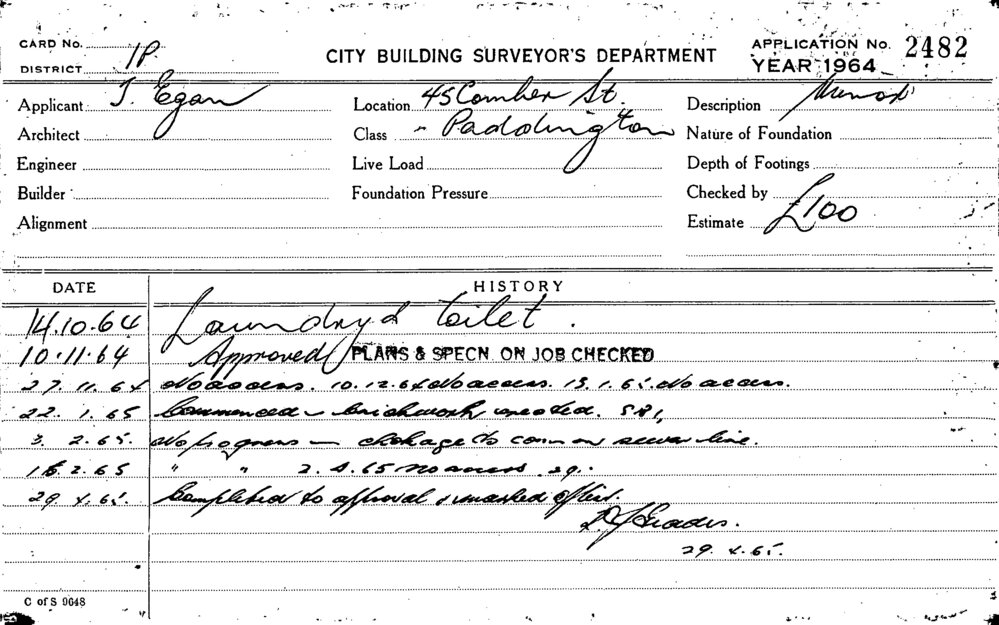 CARD No.
DISTRICT 1P
CITY BUILDING SURVEYOR'S DEPARTMENT
APPLICATION No. 2482
YEAR 1964
Applicant J. Egan
Location 45 Comber St.
Description
Architect
Class " Paddington
Nature of Foundation
Engineer
Live Load
Depth of Footings
Builder
Foundation Pressure
Checked by
Alignment
Estimate £100
DATE HISTORY
14.10.64 Laundry & toilet.
10.11.64 Approved PLANS & SPECN. ON JOB CHECKED
27.11.64 No access. 10.12.64 No access. 13.1.65. No access.
22.1.65 Commenced - brickwork erected.
3.2.65. No progress - chokage to common sewer line.
2.65 " " 2.4.65 no access
29.4.65. Completed to approval & marked off list.
29.4.65.
C of S 9648